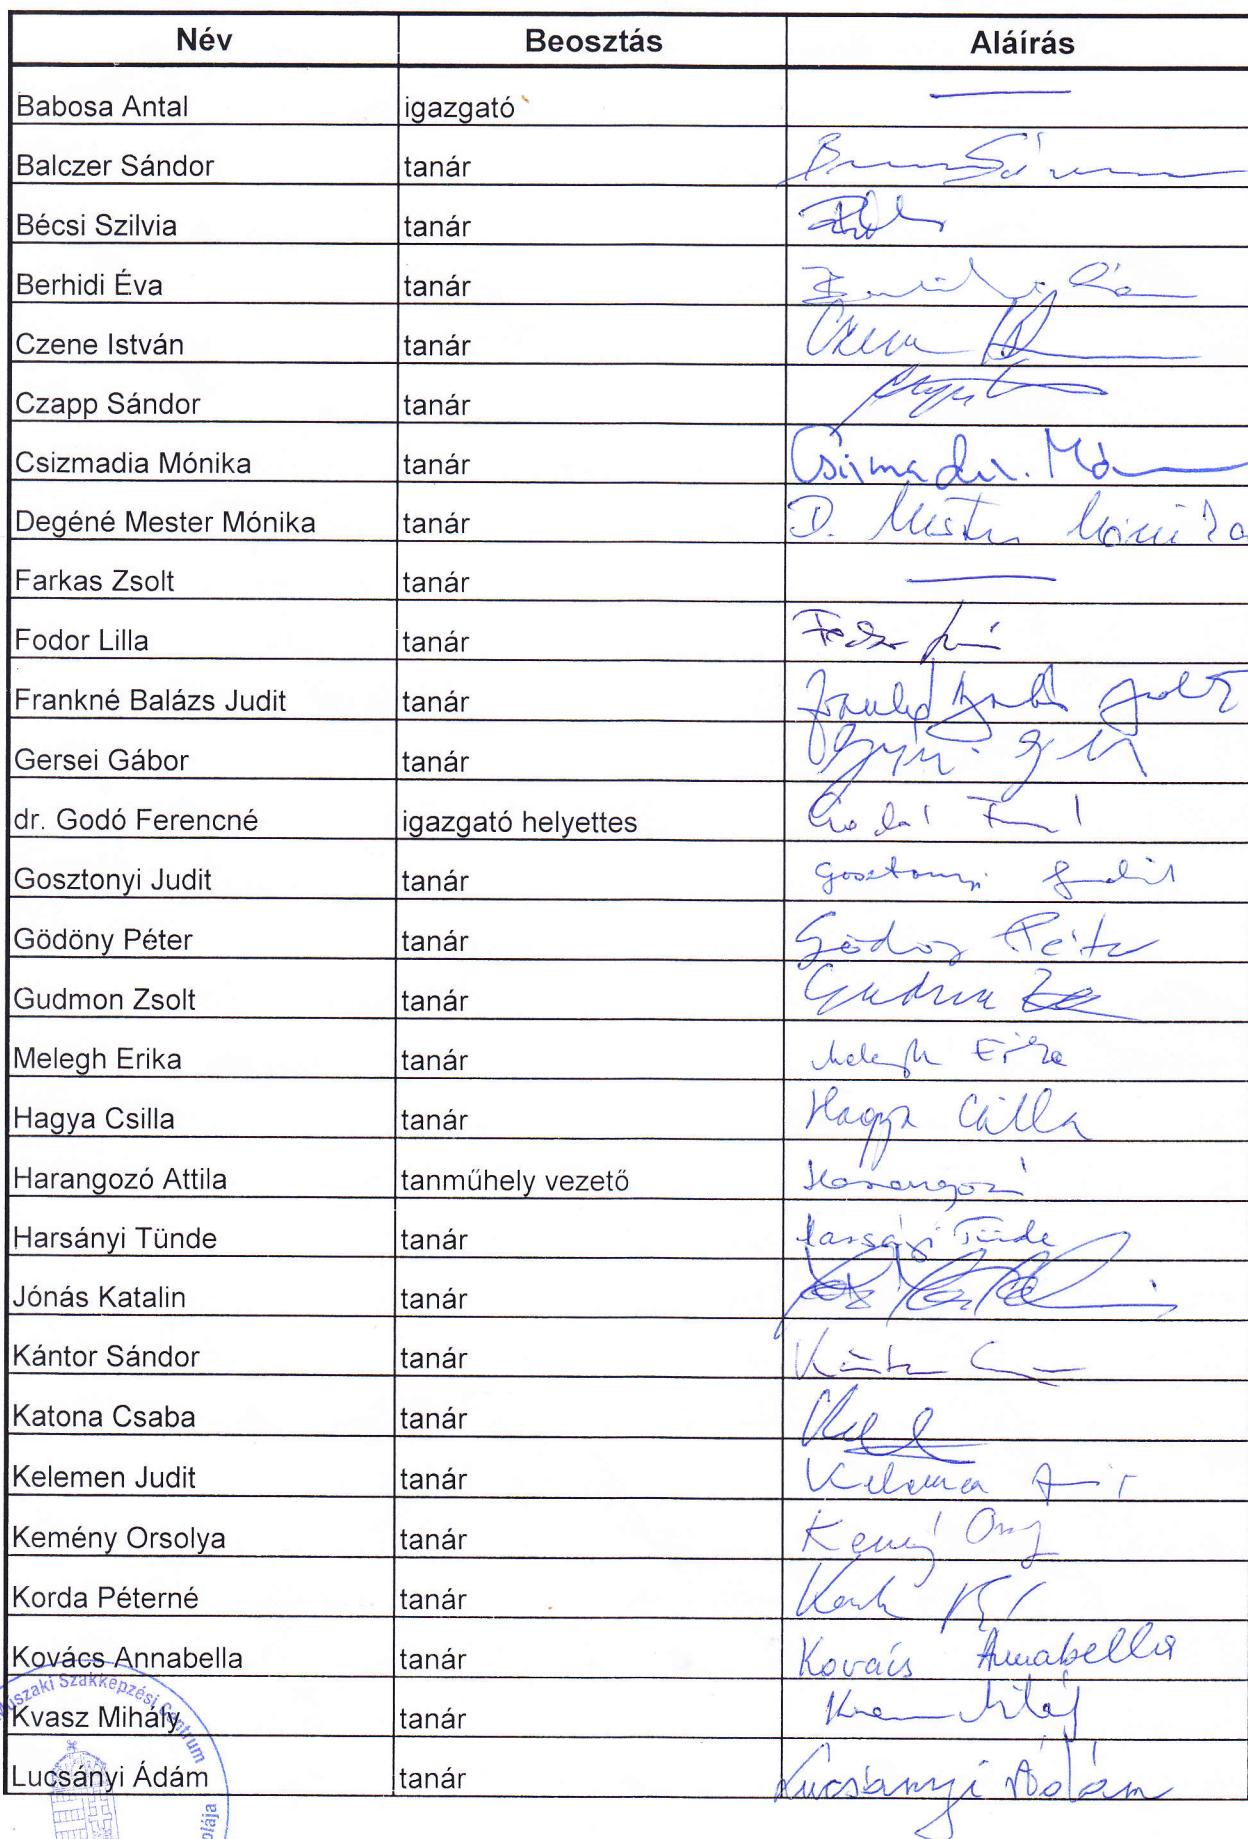 Név Beosztás Aláírás
Babosa Antal igazgató
Balczer Sándor tanár
Bécsi Szilvia tanár
Berhidi Éva tanár
Czene István tanár
Czapp Sándor tanár
Csizmadia Mónika tanár
Degéné Mester Mónika tanár D. Mester Mónika
Farkas Zsolt tanár
Fodor Lilla tanár
Frankné Balázs Judit tanár
Gersei Gábor tanár
dr. Godó Ferencné igazgató helyettes
Gosztonyi Judit tanár Gosztonyi Judit
Gödöny Péter tanár
Gudmon Zsolt tanár
Melegh Erika tanár Melegh Erika
Hagya Csilla tanár Hagya Csilla
Harangozó Attila tanműhely vezető Harangozó
Harsányi Tünde tanár Harsányi Tünde
Jónás Katalin tanár
Kántor Sándor tanár
Katona Csaba tanár
Kelemen Judit tanár Kelemen
Kemény Orsolya tanár
Korda Péterné tanár
Kovács Annabella tanár Kovács Annabella
Kvasz Mihály tanár
Lucsányi Ádám tanár Lucsányi Ádám
Szakképzési Centrum